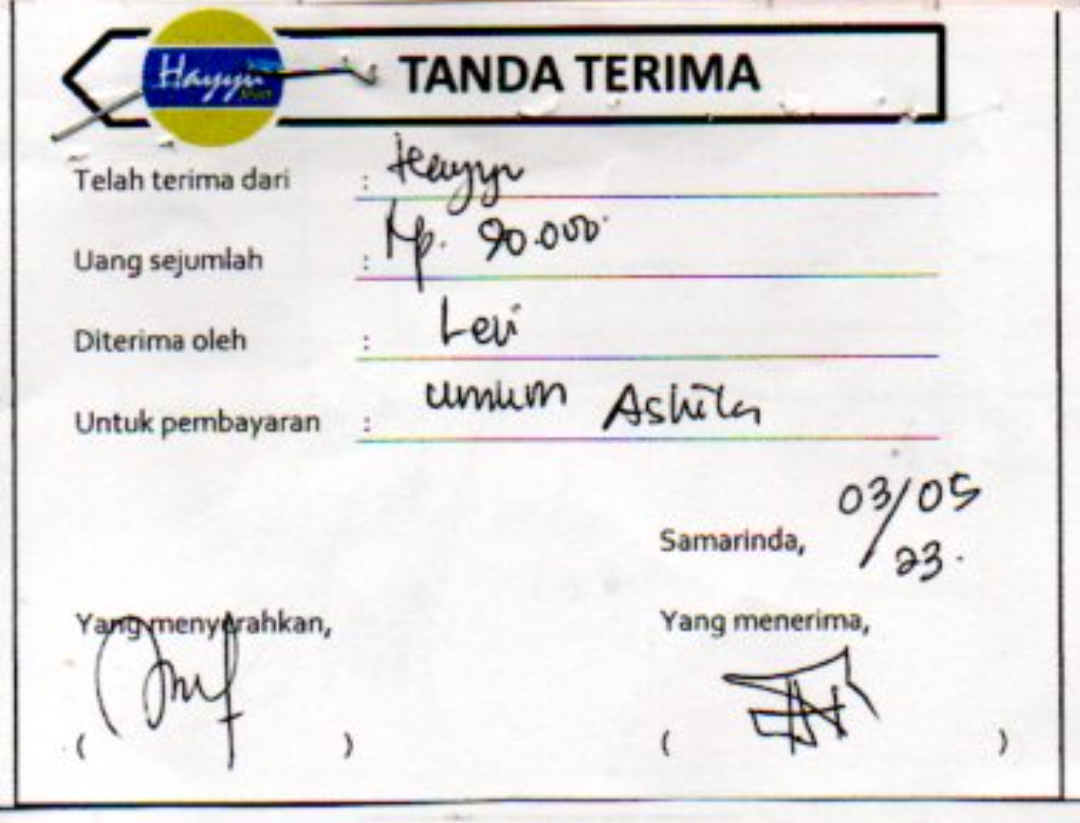 Hayyu Mart
TANDA TERIMA
Telah terima dari : Hayyu
Uang sejumlah : Rp. 90.000
Diterima oleh : Levi
Untuk pembayaran : umum Ashila
Samarinda, 03/05/23.
Yang menyerahkan, Yang menerima,
( ) ( )